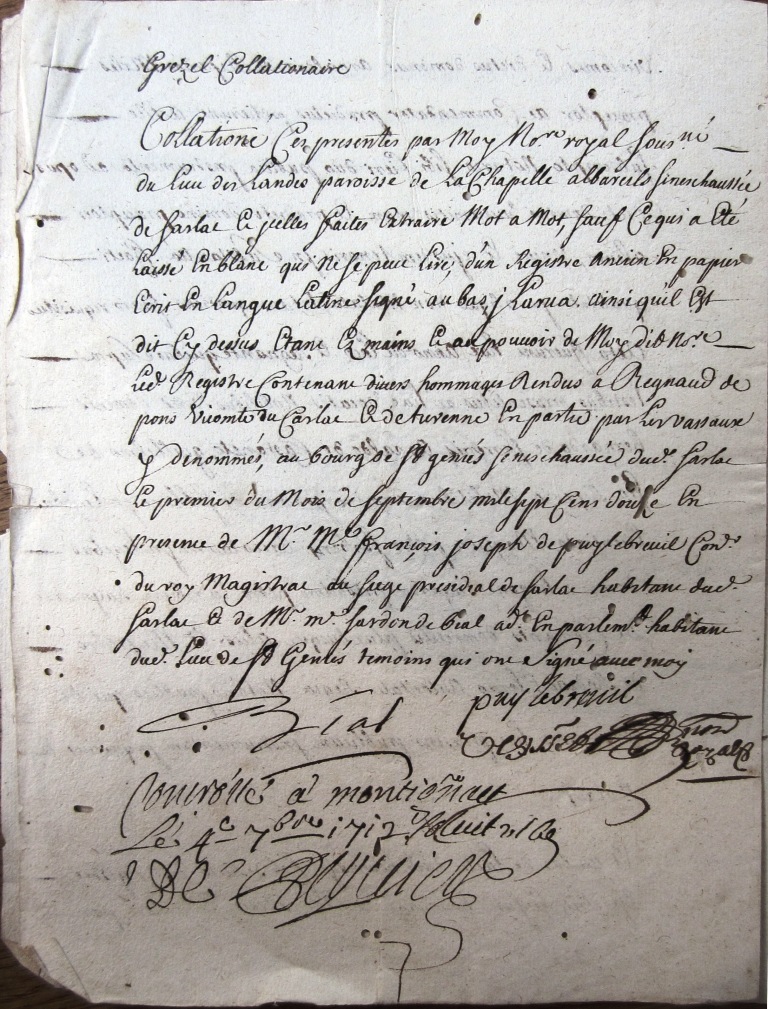 Grezel Collationaire
Collationé Ces presentes par Moy No.re royal sous.né
du Lieu des Landes paroisse de La Chapelle albareils seneschaussée
de sarlat Et jcelles faites Extraire Mot a Mot, sauf Ce qui a Eté
Laisse En blanc qui Ne se peut Lire, d'un Registre ancien En papier
Ecrit En Langue Latine signé au bas, j Larua ainsi quil Est
dit Cy dessus Etant Ez mains Et au pouvoir de Moy dit No.re
Led. Registre Contenant divers hommages Rendus a Regnaud de
pons Vicomte du Carlat Et de turenne En partie par Les vassaux
y denommés, au bourg de st geniés seneschaussée dud. sarlat
Le premier du Mois de septembre mile sept Cens douze En
presence de Mr. Me. françois joseph de puylebreuil Con.er
du roy Magistrat au siege presidial de sarlat habitant dud.
sarlat Et de Mr. me. sardon de bial ad.t En parlem.t habitant
dud. Lieu de st Geniés temoins qui ont signé avec moy
Bial puylebreuil
Controllé a montignact
Le 4e 7bre 1712